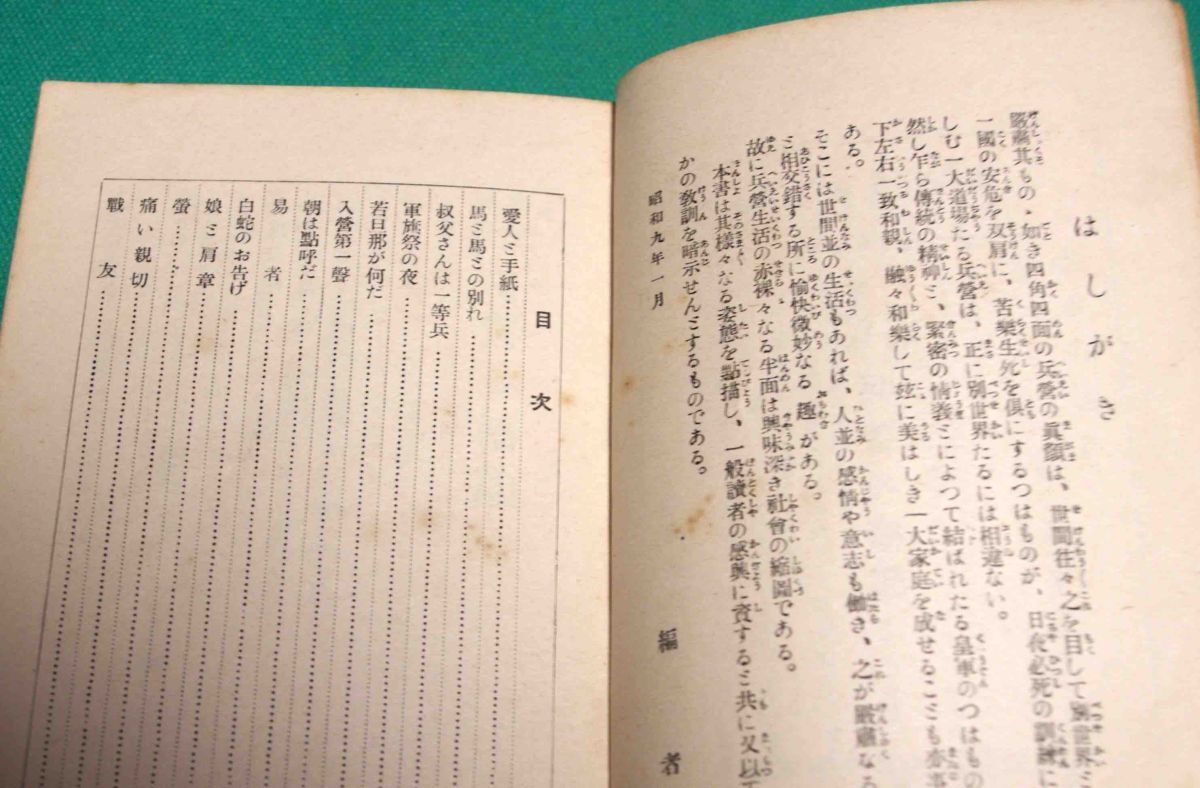 はしがき
嚴肅其もの、如き四角四面の兵營の眞顏は、世間往々之を目して別世界ミ
一國の安危を双肩に、苦樂生死を倶にするつはものが、日夜必死の訓練に
しむ一大道場たる兵營は、正に別世界たるには相違ない。
然し乍ら傳統の精神ミ、緊密の情義ミによつて結ばれたる皇軍のつはもの
下左右一致和親、融々和樂して玆に美はしき一大家庭を成せるこミも亦事
ある。
そこには世間並の生活もあれば、人並の感情や意志も働き、之が嚴肅なる
ミ相交錯する所に愉快微妙なる趣がある。
故に兵營生活の赤裸々なる半面は興味深き社會の縮圖である。
本書は其樣々なる姿態を點描し、一般讀者の感興に資するミ共に又以て
かの敎訓を暗示せんミするものである。
昭和九年一月
編者
目次
愛人ミ手紙
馬ミ馬ミの別れ
叔父さんは一等兵
軍旗祭の夜
若旦那が何だ
入營第一聲
朝は點呼だ
易者
白蛇のお告げ
娘ミ肩章
螢
痛い親切
戰友